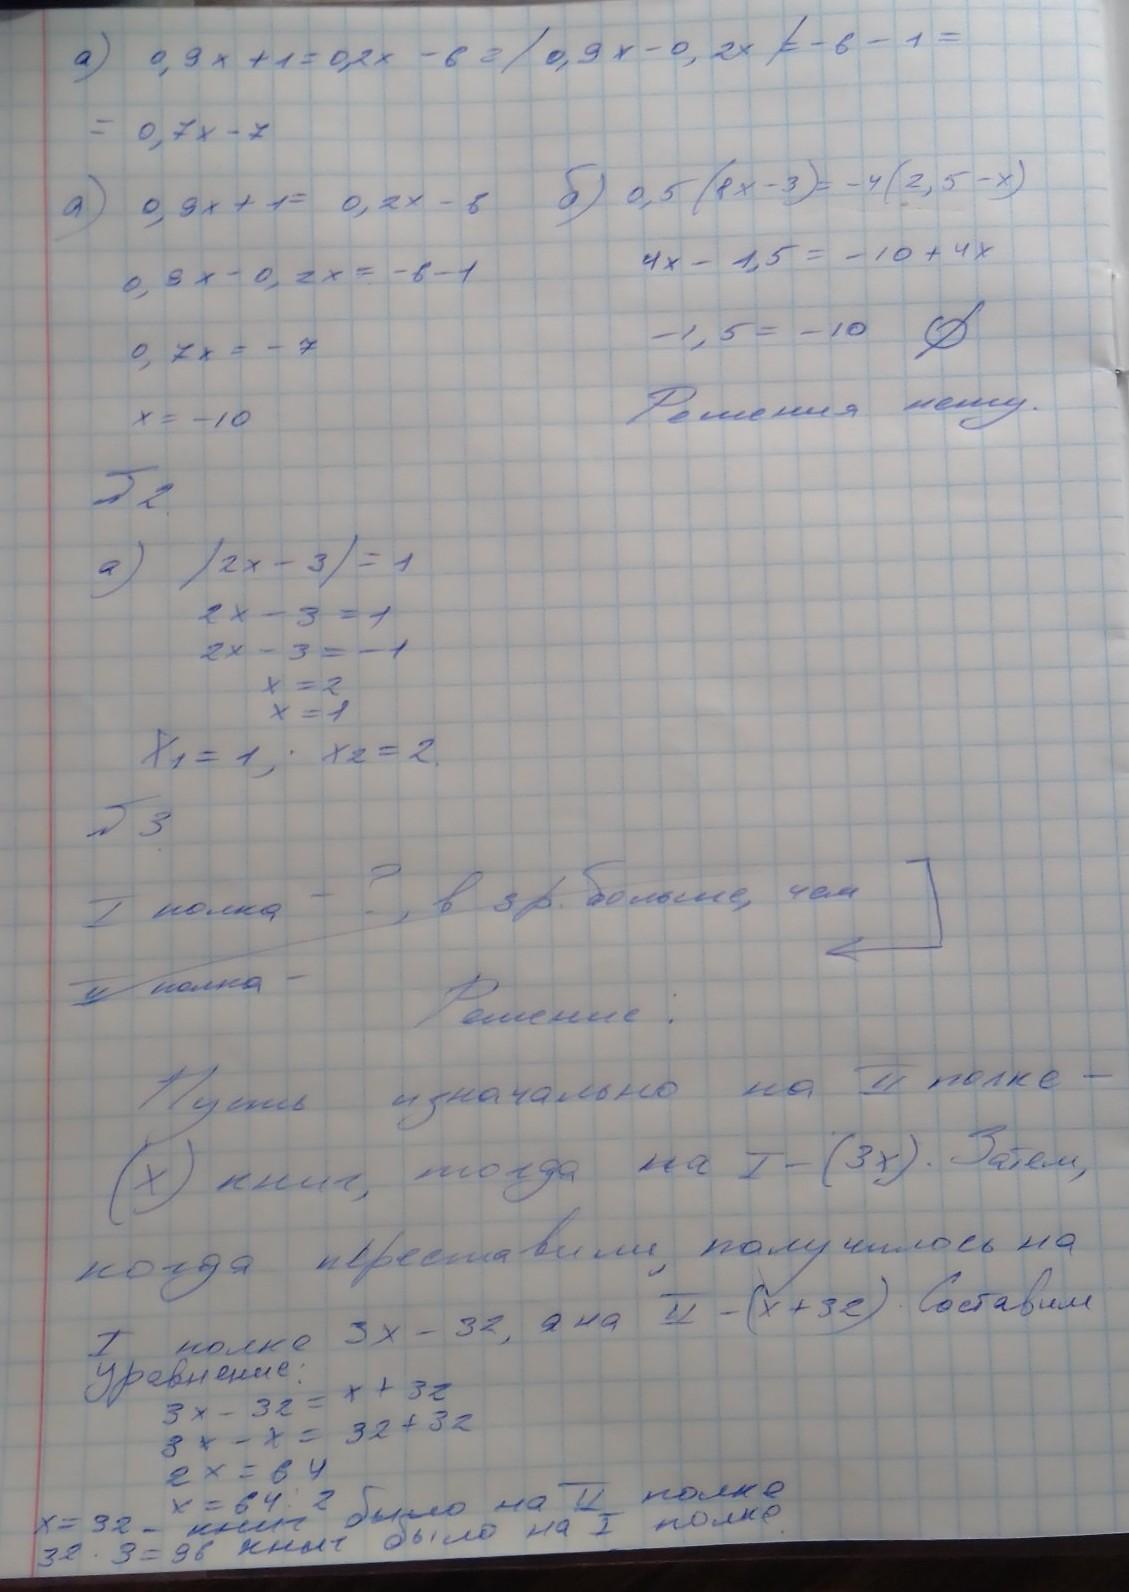 а) 0,9x + 1 = 0,2x - 6 = / 0,9x - 0,2x / = - 6 - 1 =
= 0,7x - 7
а) 0,9x + 1 = 0,2x - 6
0,9x - 0,2x = - 6 - 1
0,7x = - 7
x = -10
б) 0,5(8x - 3) = -4(2,5 - x)
4x - 1,5 = -10 + 4x
-1,5 = -10 ∅
Решения нету.
№2
а) |2x - 3| = 1
2x - 3 = 1
2x - 3 = -1
x = 2
x = 1
x₁ = 1; x₂ = 2
№3
I полка - ?, в 3 р. больше, чем
II полка -
Решение:
Пусть изначально на II полке -
(x) книг, тогда на I - (3x). Затем,
когда переставили, получилось на
I полке 3x - 32, а на II - (x + 32). Составим
уравнение:
3x - 32 = x + 32
3x - x = 32 + 32
2x = 64
x = 64 : 2
x = 32 - книг было на II полке
32 · 3 = 96 книг было на I полке.